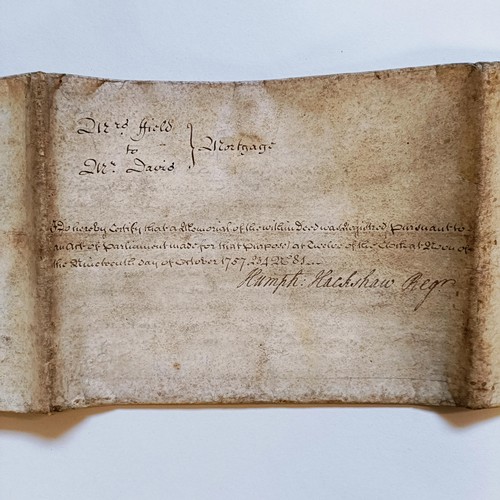 Mrs. ffield
to
Mr. Davis
} Mortgage
I Do hereby Certify that a Memorial of the within deed was Registred pursuant to
an Act of Parliament made for that Purpose at Twelve of the Clock at Noon of
the Nineteenth day of October 1757. No 81
Humph: Hackshaw Regr.